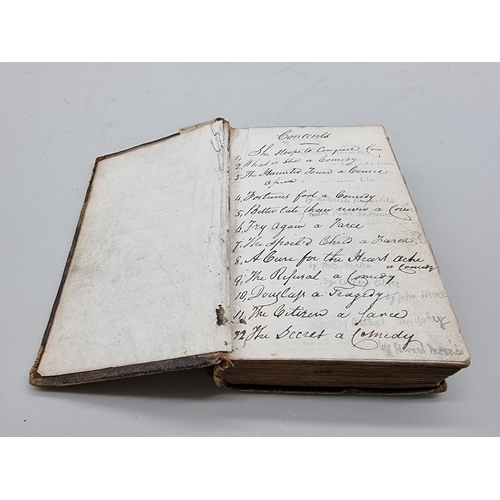 Contents
1. She Stoops to Conquer Com
2. What is She a Comedy
3. The Haunted Tower a Comic
Opera
4. Fortunes fool a Comedy
5. Better late than never a Com
6. Try again a Farce
7. The Spoil'd Child a Farce
8. A Cure for the Heart ache
a Comedy
9. The Refusal a Comedy
10. Douglass a Tragedy
by John Home
11. The Citizen a Farce
by Arthur Murphy
12. The Secret a Comedy
by Edward Morris